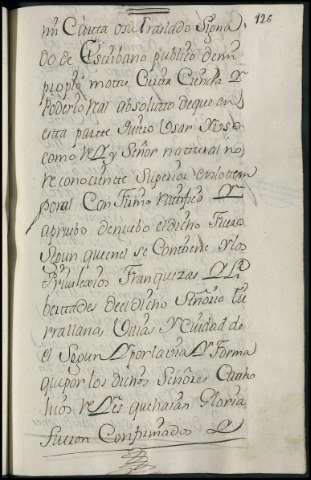 126
mi Carta o su Traslado Signa
do de Escribano publico de mi
proprio motu Cierta Ciencia y
Poderio real absoluto de que en
esta parte quiero Usar y Uso
como rey y Señor natural no
reconociente Superior en lo tem
poral Confirmo ratifico y
apruebo de nuebo el dicho Fuero
segun que en el se Contiene y los
Privilexios Franquezas y Li
bertades de el dicho Señorio tie
rra llana Villas y Ciudad de
el Segun y por la via y Forma
que por los dichos Señores Catho
licos reyes que haian Gloria
fueron Confirmados y